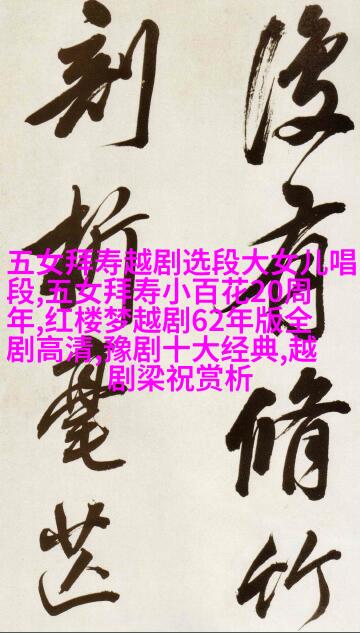 五女拜寿越剧选段大女儿唱
段,五女拜寿小百花20周
年,红楼梦越剧62年版全
剧高清,豫剧十大经典,越
剧梁祝赏析
有脩竹
析毫